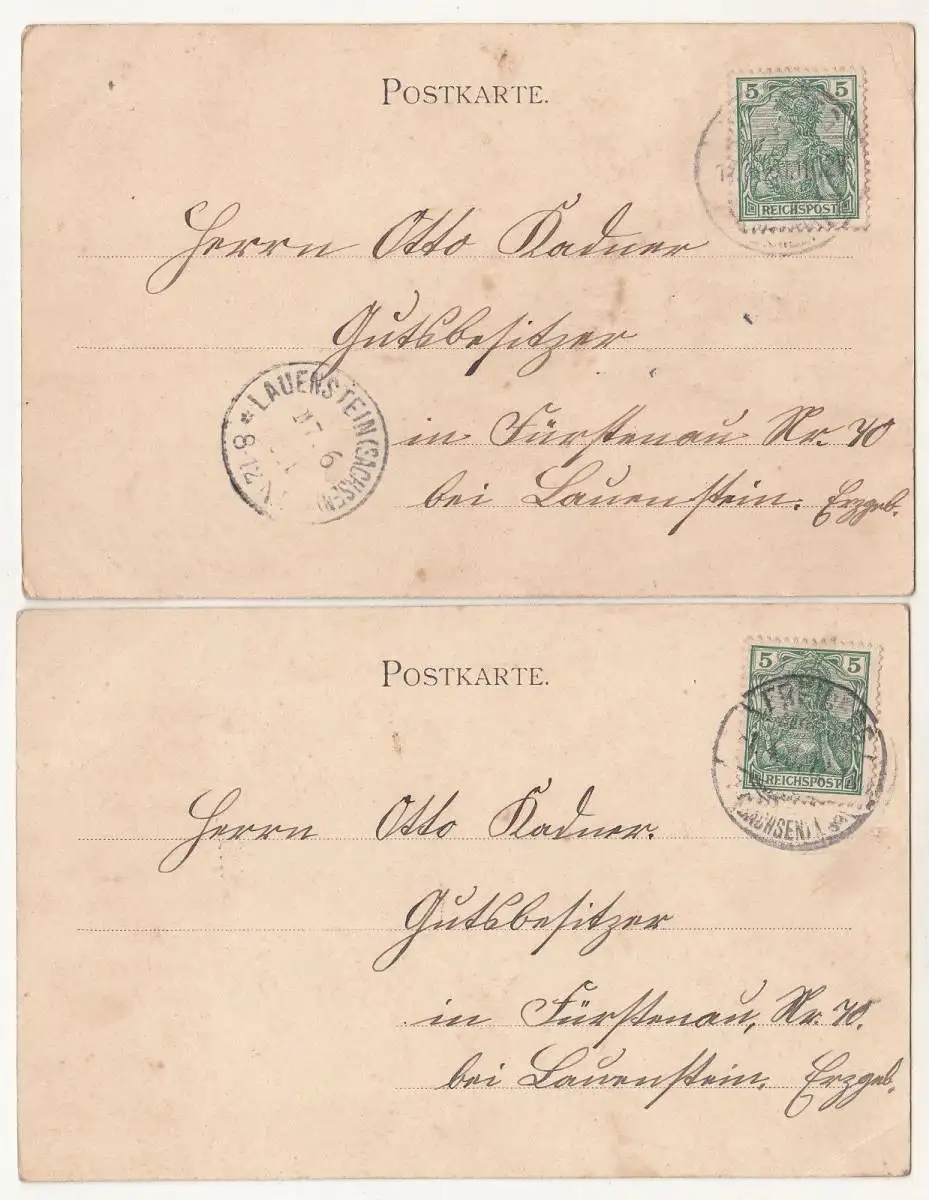 POSTKARTE.
5 5
REICHSPOST
Herrn Otto Kadner
Gutsbesitzer
LAUENSTEIN (SACHSEN)
in Fürstenau Nr. 70
bei Lauenstein. Erzgeb.
POSTKARTE.
5 5
REICHSPOST
(SACHSEN) 1
Herrn Otto Kadner.
Gutsbesitzer
in Fürstenau, Nr. 70.
bei Lauenstein. Erzgeb.